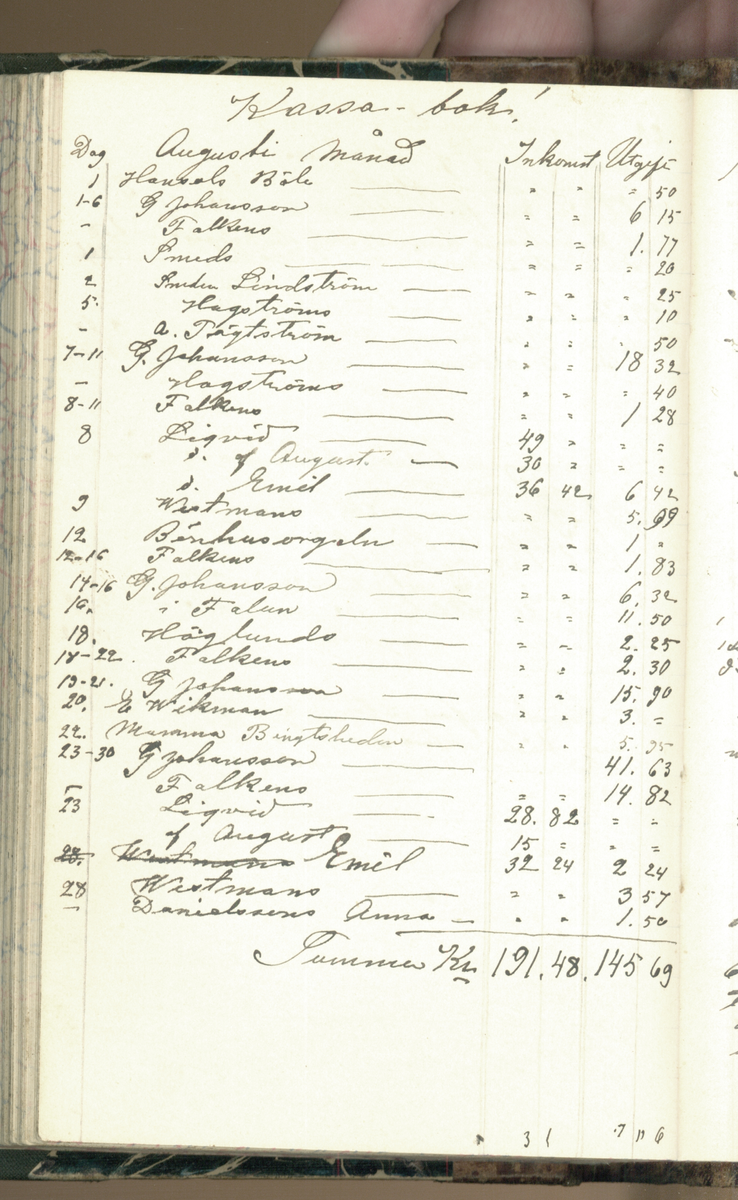 Kassa-bok!
Dag Augusti Månad Inkomst Utgift
1 Hansols Böle " " " 50
1-6 G Johansson " " 6 15
- Falkens " " 1. 77
1 Smeds " " " 20
2 Smeden Lindström " " " 25
5. Hagströms " " " 10
- A. Tägtström " " " 50
7-11 G. Johansson " " 18 32
- Hagströms " " " 40
8-11 Falkens " " 1 28
8 Liqvid 49 " " "
d. af August. 30 " " "
d. Emil 36 42 6 42
9 Westmans " " 5. 99
12 Bönhusorgeln " " 1 "
12-16 Falkens " " 1. 83
14-16 G. Johansson " " 6. 32
16. i Falun " " 11. 50
18. Höglunds " " 2. 25
18-22. Falkens " " 2. 30
19-21. G Johansson " " 15. 90
20. E Wikman " " 3. "
22. Mamma " " 5. 95
23-30 G Johansson 41. 63
- Falkens " " 14. 82
23 Liqvid 28. 82 " "
af August 15 " " "
28. Westmans Emil 32 24 2 24
28 Westmans " " 3 57
- Danielssons Anna " " 1. 50
Summa Kr 191. 48. 145 69
3 1 7 6